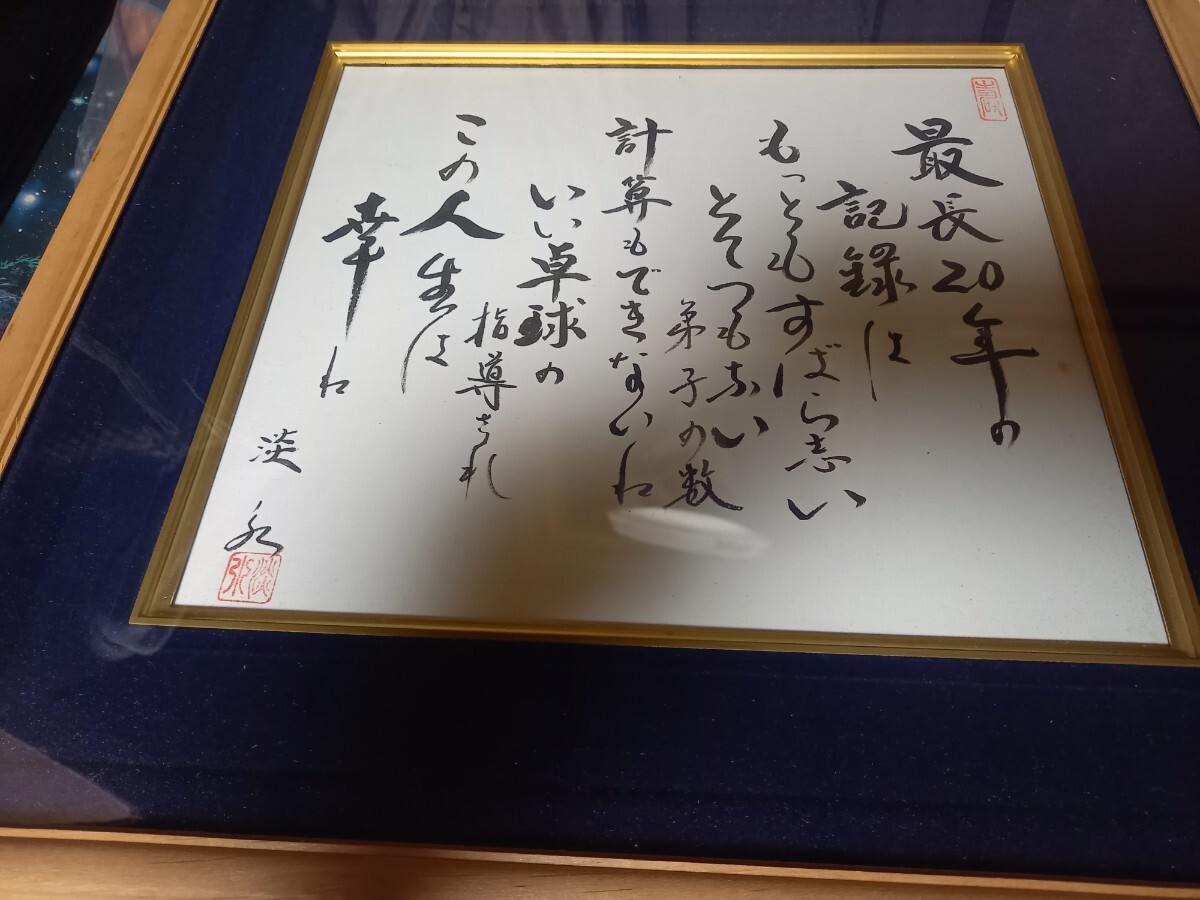 最長20年の
記録は
もっともすばらしい
とてつもない
弟子の数
計算もできないね
いい卓球の
指導され
この人生は
幸ね
淡水